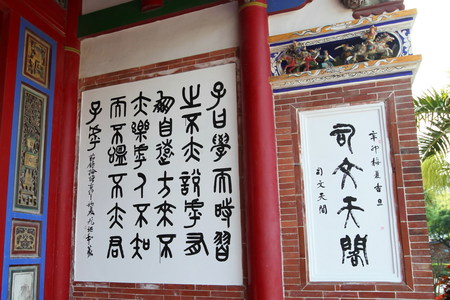 辛卯梅夏吉旦
司文天閣
司文天閣
子曰學而時習
之不亦說乎有
朋自遠方來不
亦樂乎人不知
而不慍不亦君
子乎